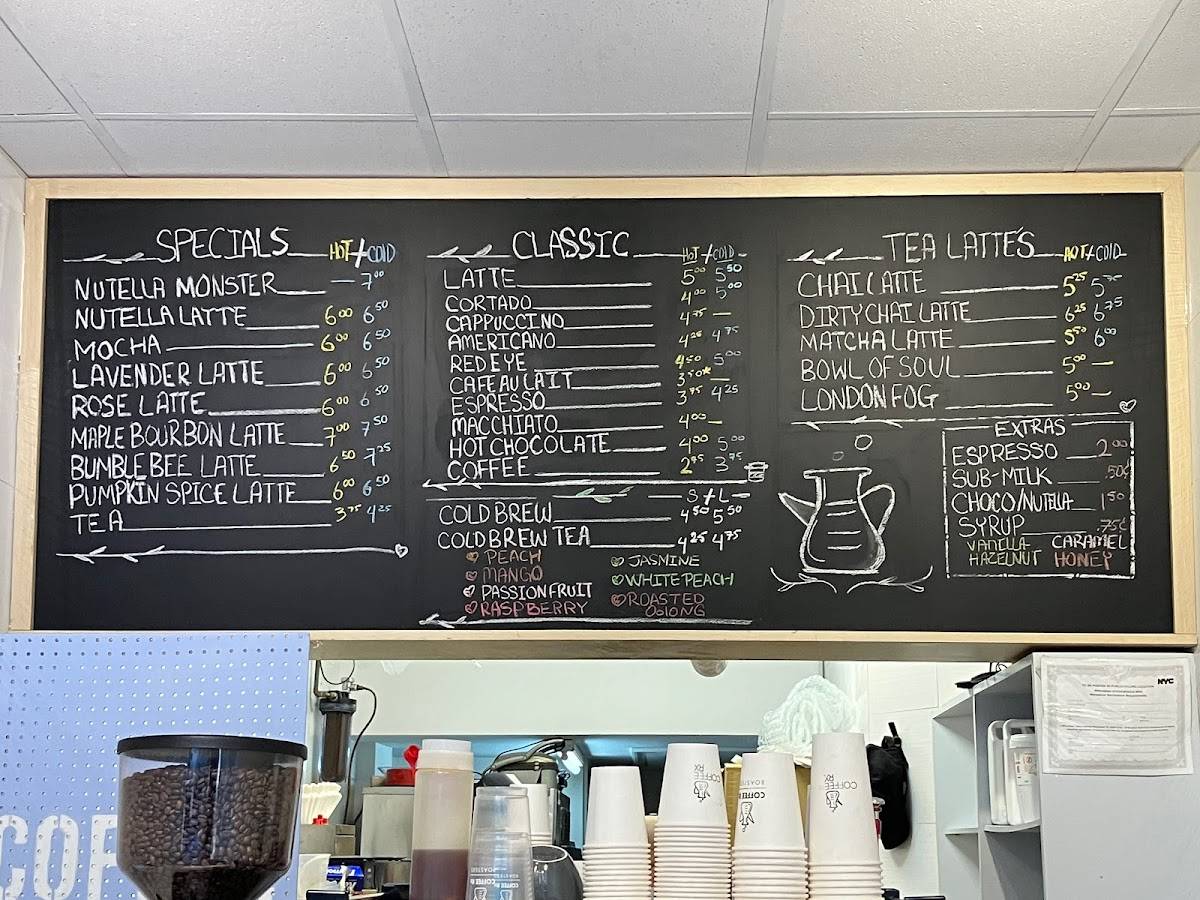 SPECIALS HOT/COLD
NUTELLA MONSTER — 7.00
NUTELLA LATTE 6.00 6.50
MOCHA 6.00 6.50
LAVENDER LATTE 6.00 6.50
ROSE LATTE 6.00 6.50
MAPLE BOURBON LATTE 7.00 7.50
BUMBLE BEE LATTE 6.50 7.25
PUMPKIN SPICE LATTE 6.00 6.50
TEA 3.75 4.25
CLASSIC HOT/COLD
LATTE 5.00 5.50
CORTADO 4.00 5.00
CAPPUCCINO 4.75 —
AMERICANO 4.25 4.75
RED EYE 4.50 5.00
CAFE AU LAIT 3.50* —
ESPRESSO 3.75 4.25
MACCHIATO 4.00 —
HOT CHOCOLATE 4.00 5.00
COFFEE 2.75 3.75
S/L
COLD BREW 4.50 5.50
COLD BREW TEA 4.25 4.75
PEACH
MANGO
PASSIONFRUIT
RASPBERRY
JASMINE
WHITE PEACH
ROASTED
OOLONG
TEA LATTE'S HOT/COLD
CHAI LATTE 5.25
DIRTY CHAI LATTE 6.25 6.75
MATCHA LATTE 5.50 6.00
BOWL OF SOUL 5.00 —
LONDON FOG 5.00 —
EXTRAS
ESPRESSO 2.00
SUB-MILK .50¢
CHOCO/NUTELLA 1.50
SYRUP .75¢
VANILLA CARAMEL
HAZELNUT HONEY
COF
COFFEE RX
ROASTERS
COFFEE RX
COFFEE RX
COFFEE
NYC